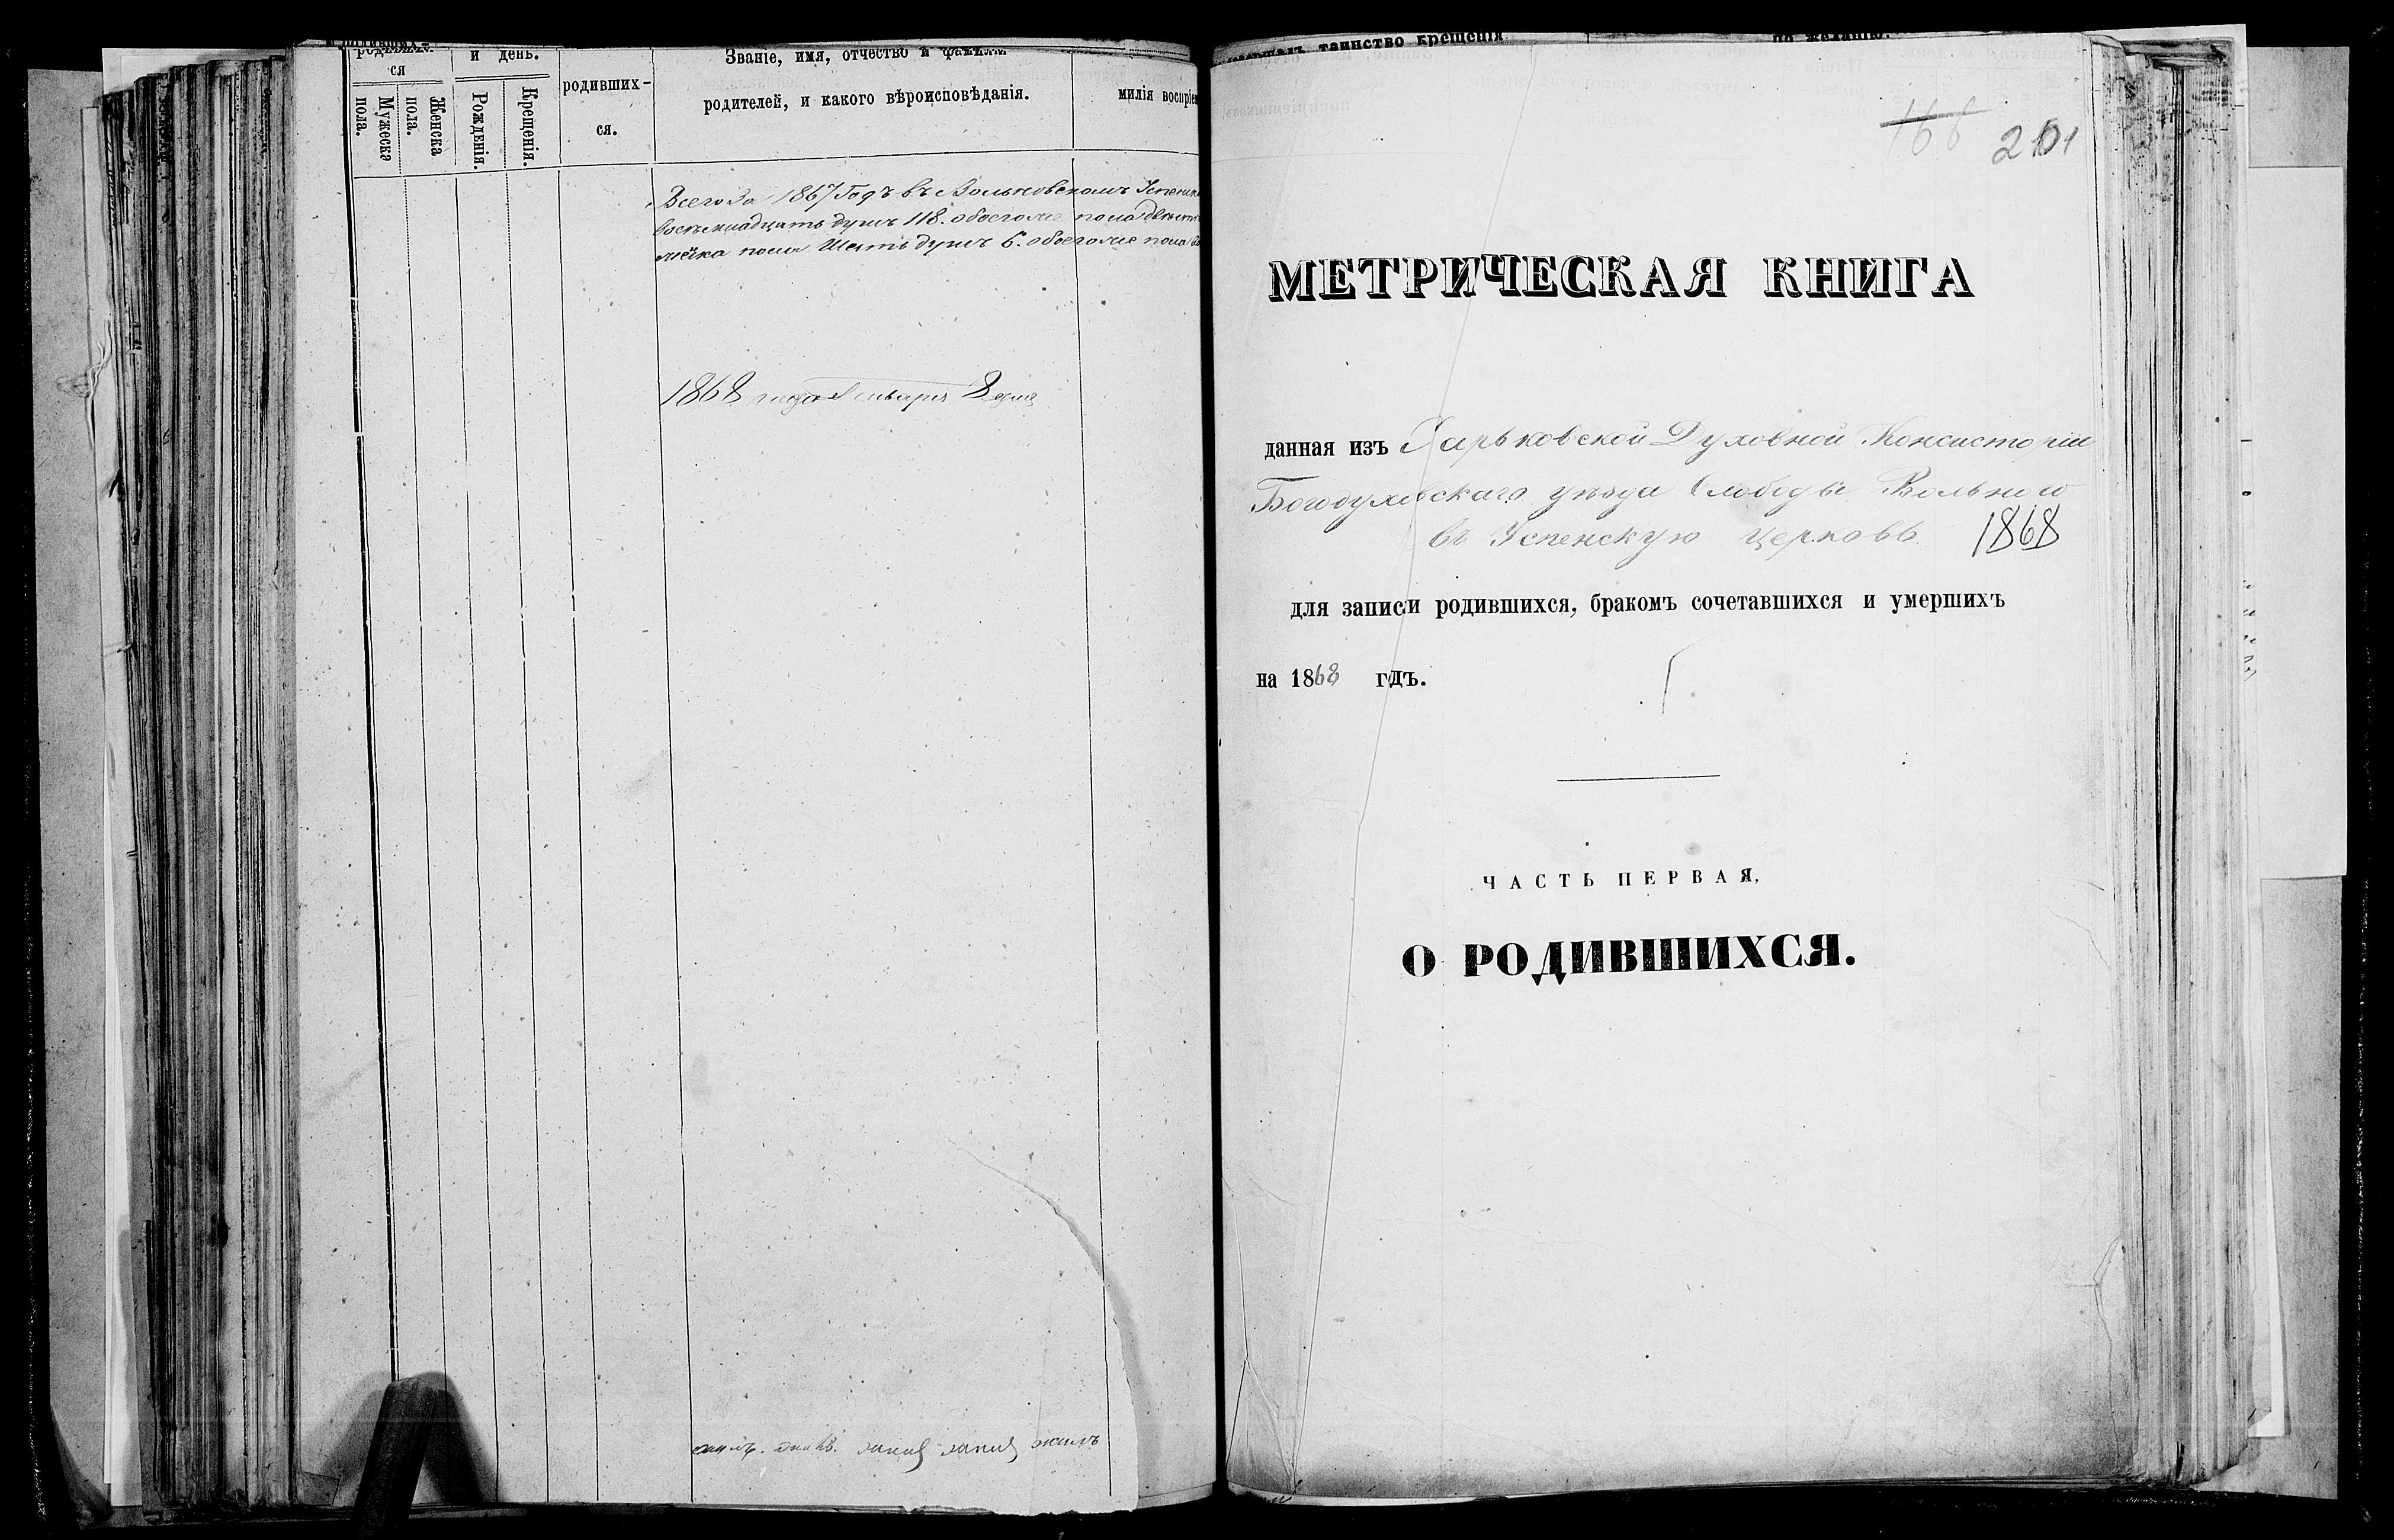 родивших-
ся
Мужеска пола.
Женска пола.
и день.
Рожденія.
Крещенія.
родивших-
ся.
Званіе, имя, отчество и фамилія
родителей, и какого вѣроисповѣданія.
милія воспріем
Всего за 1867 Годъ въ Вольновскомъ Успенско
восемнадцать душъ 118. обоего пола двѣсти
пола Шесть душъ 6. обоего пола
1868 года Января 8 дня
таинство крещенія
по желанію.
166 201
МЕТРИЧЕСКАЯ КНИГА
данная изъ Харьковской Духовной Консисторіи
Богодуховскаго уѣзда Слободы Вольного
въ Успенскую церковь 1868
для записи родившихся, бракомъ сочетавшихся и умершихъ
на 1868 годъ.
ЧАСТЬ ПЕРВАЯ,
О РОДИВШИХСЯ.